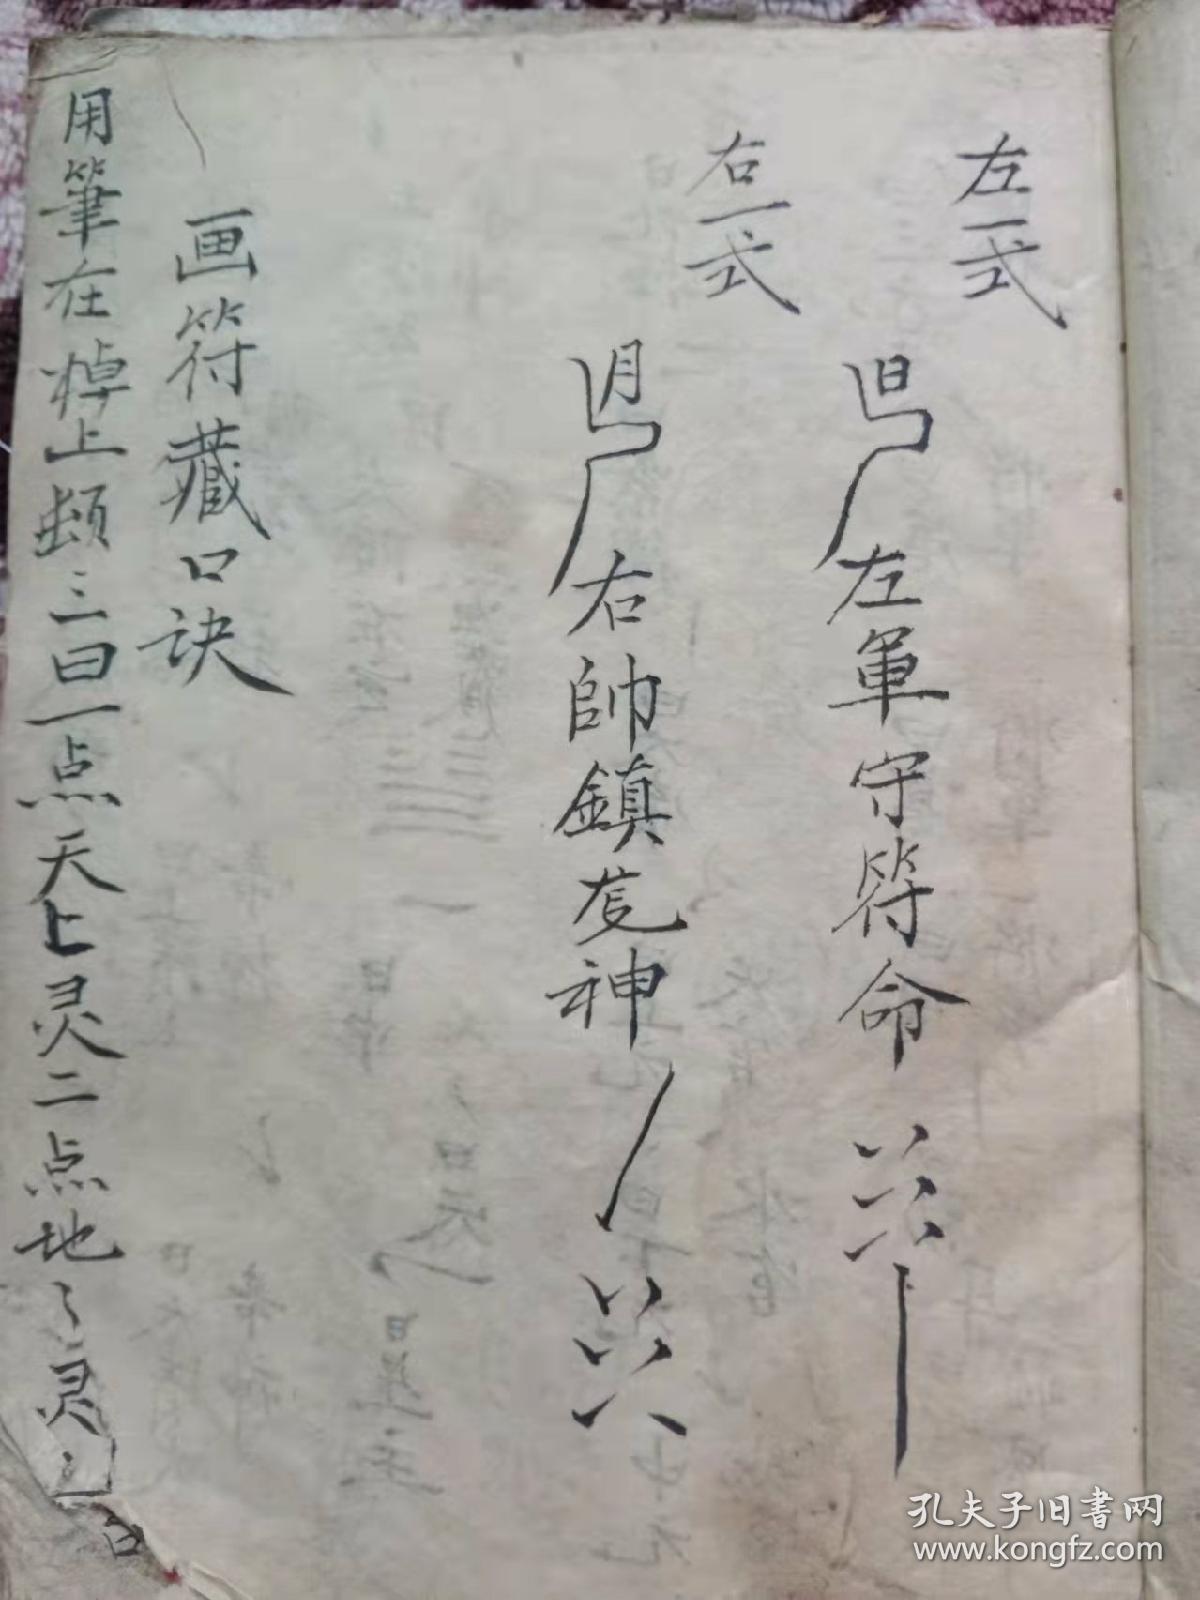 左一式
日 左軍守符命
右一式
月 右帥鎮神
画符藏口诀
用筆在棹上三曰一点天上灵二点地々灵
孔夫子旧书网
www.kongfz.com